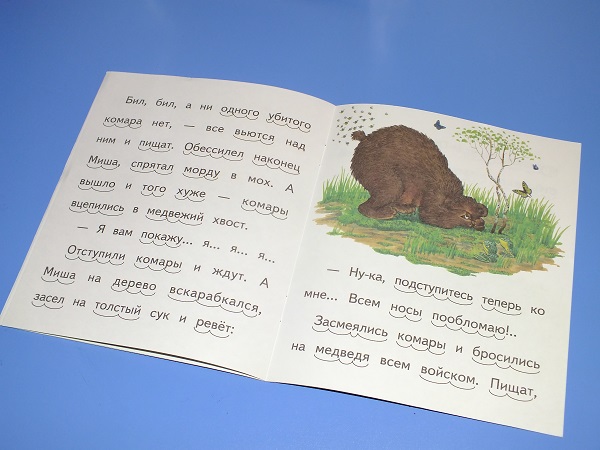 Бил, бил, а ни одного убитого
комара нет, — все вьются над
ним и пищат. Обессилел наконец
Миша, спрятал морду в мох. А
вышло и того хуже — комары
вцепились в медвежий хвост.
— Я вам покажу... я... я... я...
Отступили комары и ждут. А
Миша на дерево вскарабкался,
засел на толстый сук и ревёт:
— Ну-ка, подступитесь теперь ко
мне... Всем носы пообломаю!..
Засмеялись комары и бросились
на медведя всем войском. Пищат,